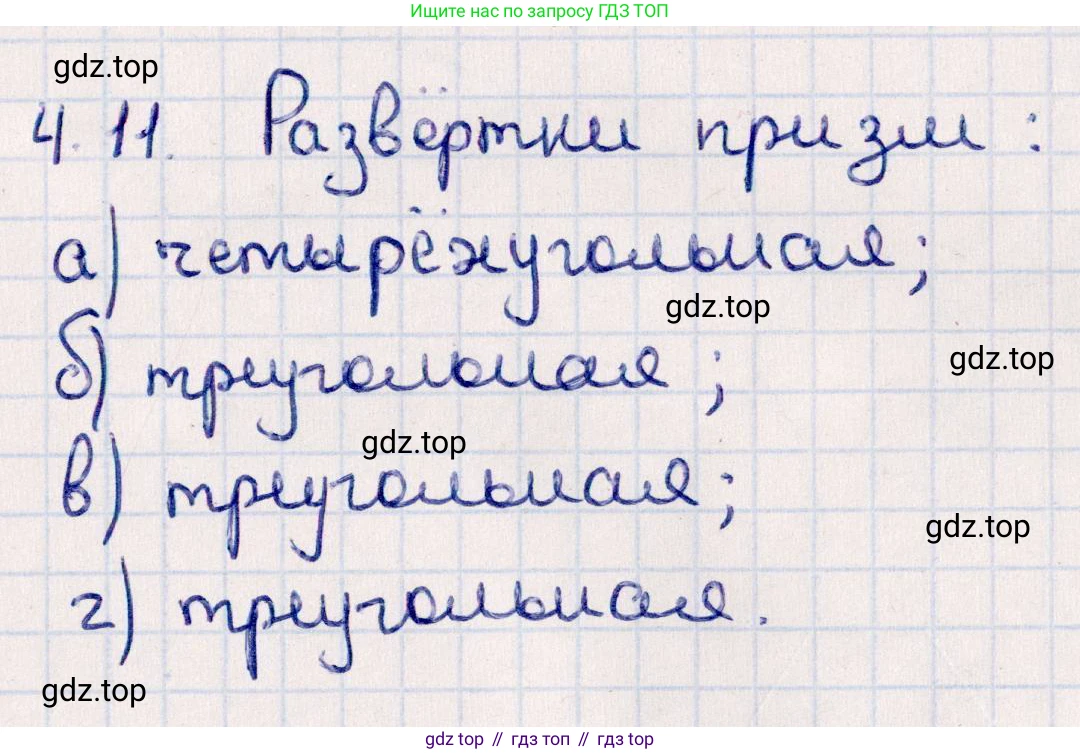 Ищите нас по запросу ГДЗ ТОП
gdz.top
4.11. Развёртки призм:
а) четырёхугольная;
gdz.top
б) треугольная;
gdz.top
gdz.top
в) треугольная;
gdz.top
г) треугольная.
gdz.top
gdz top // гдз топ // гдз top